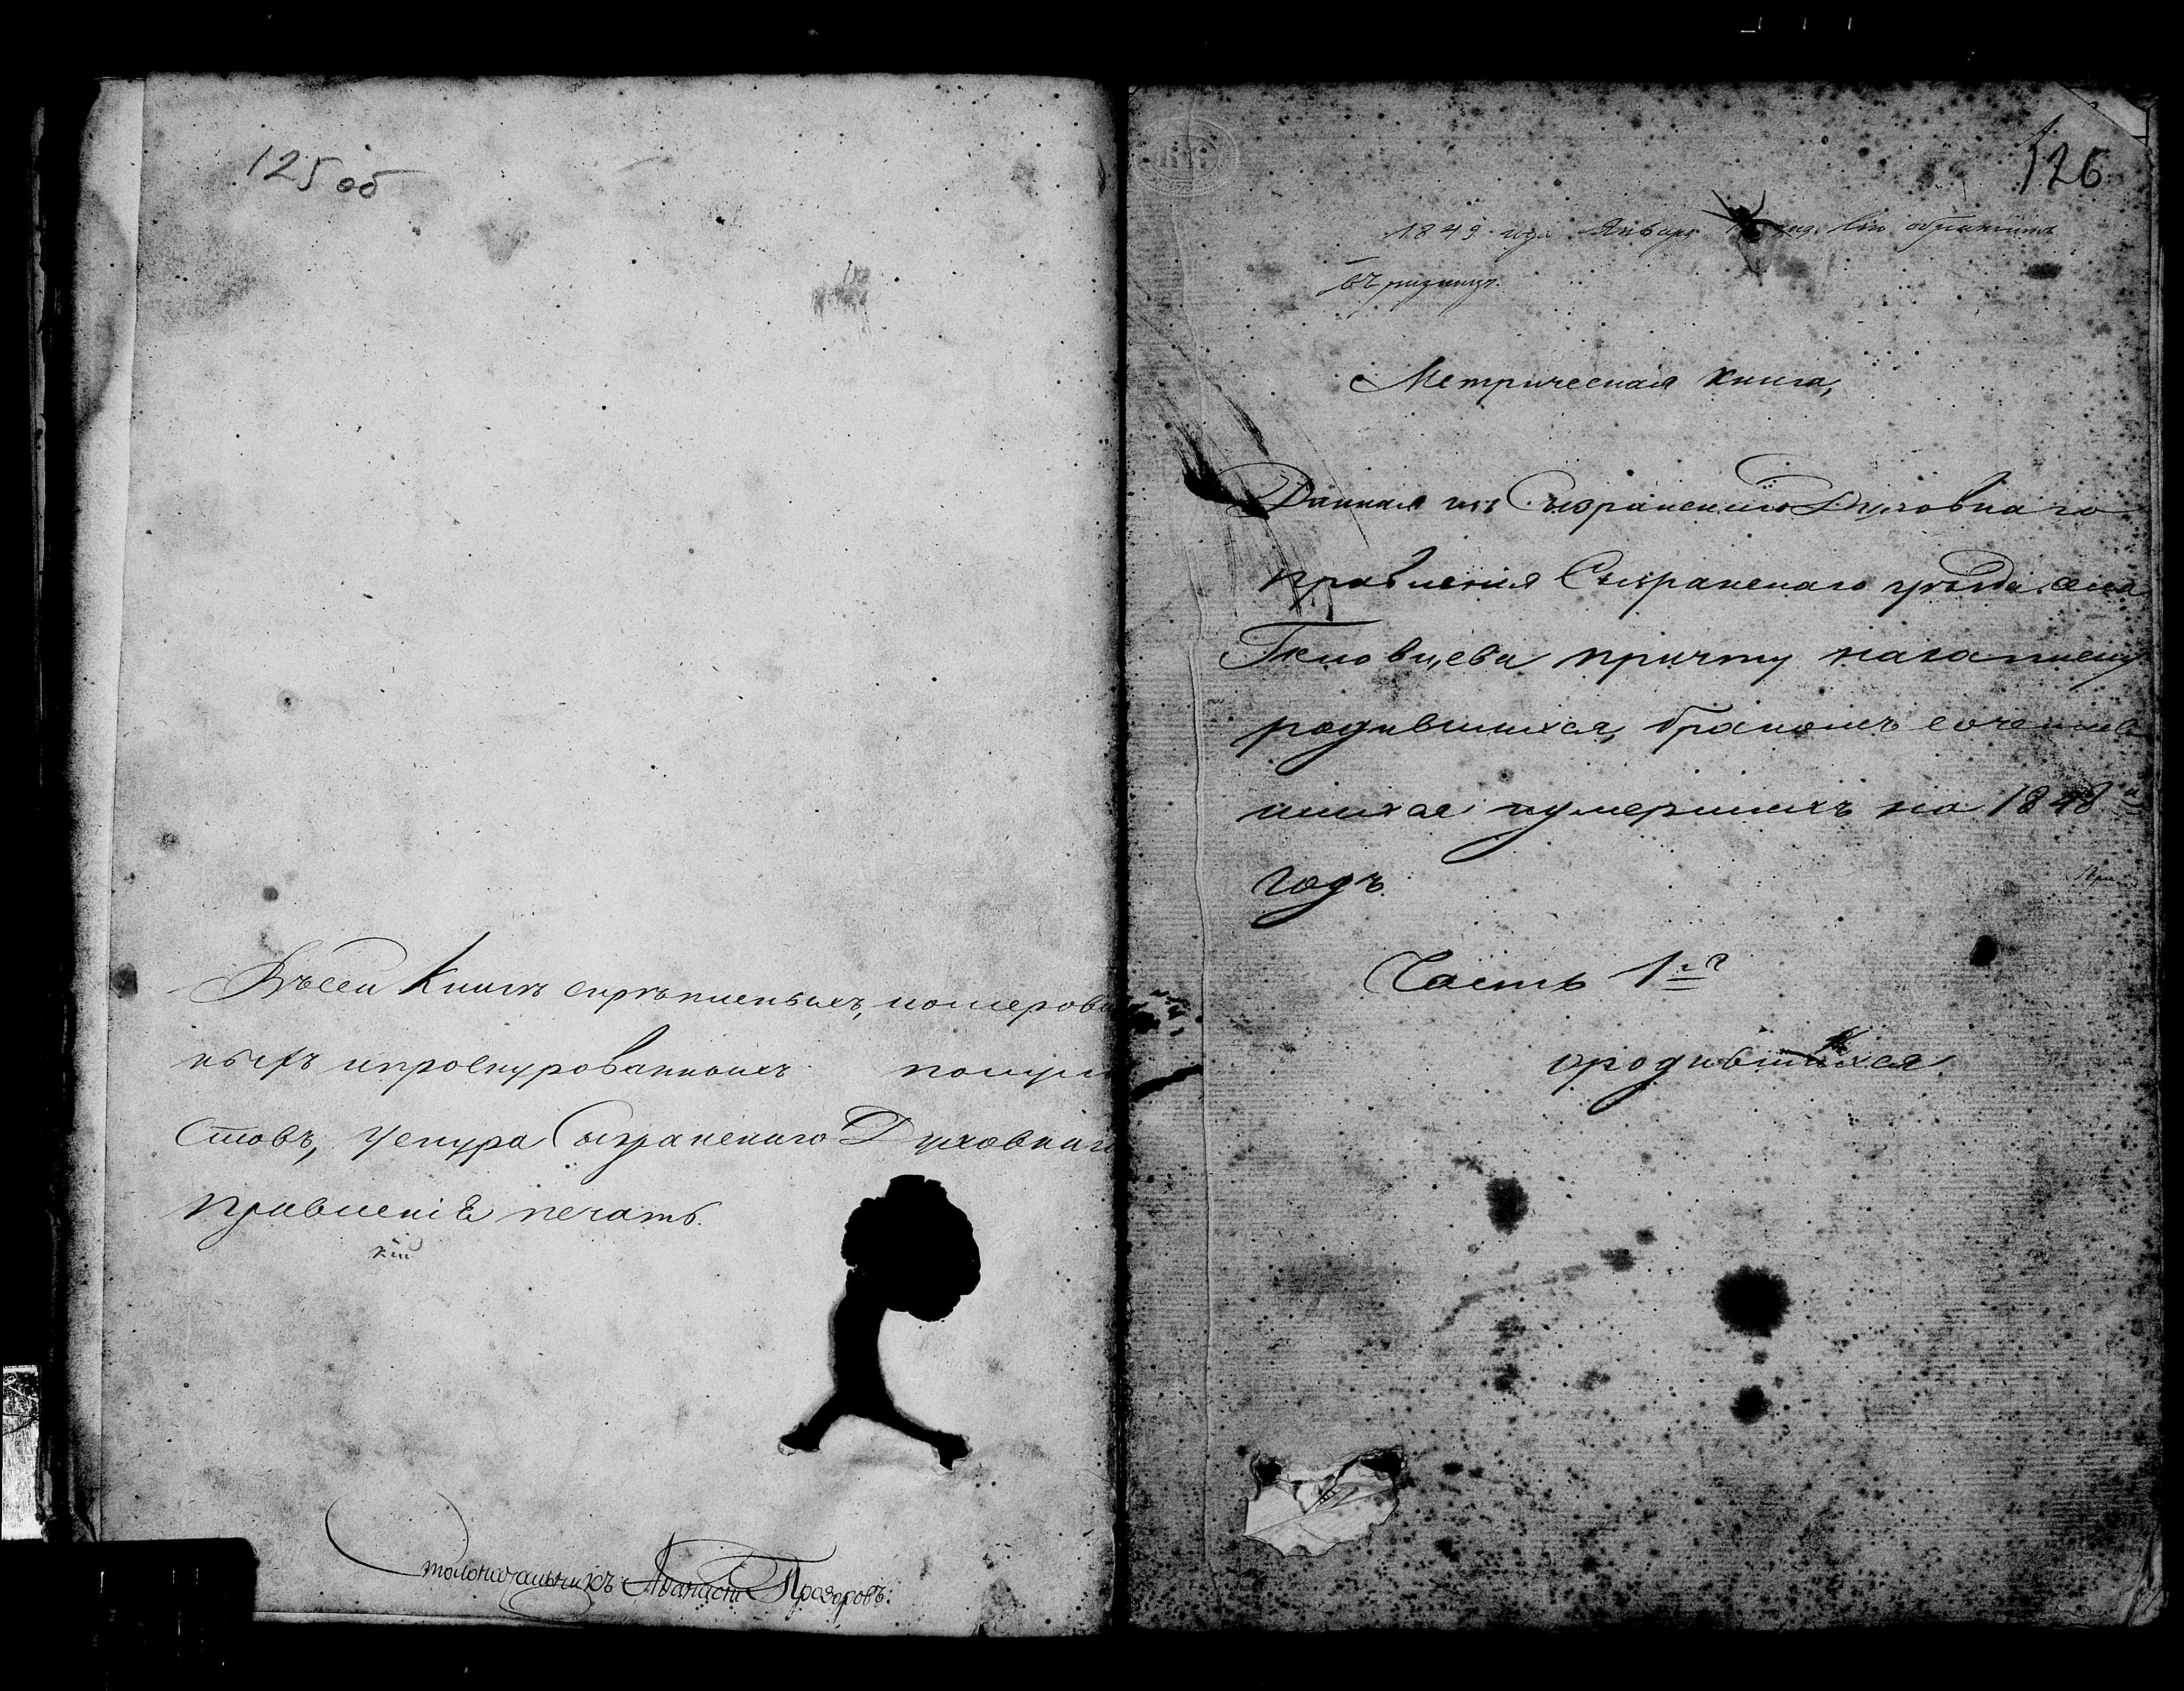 125 об
Въ сей Книгѣ скрѣпленыхъ, номерова
ныхъ ипрошнурованныхъ полу
стовъ, ушнура Сызранскаго Духовнаго
правленіЯ печать.
Столоначальникъ Аѳанасій Прозоровъ.
126
1849 года Января
въ ризницу.
Метрическая книга,
Данная изъ Сызранскаго Духовнаго
правления Сызранскаго уѣзда села
причту на записку
родившихся, бракомъ сочетав
шихся иумершихъ на 1848й
годъ.
Часть 1я
ородившихся.